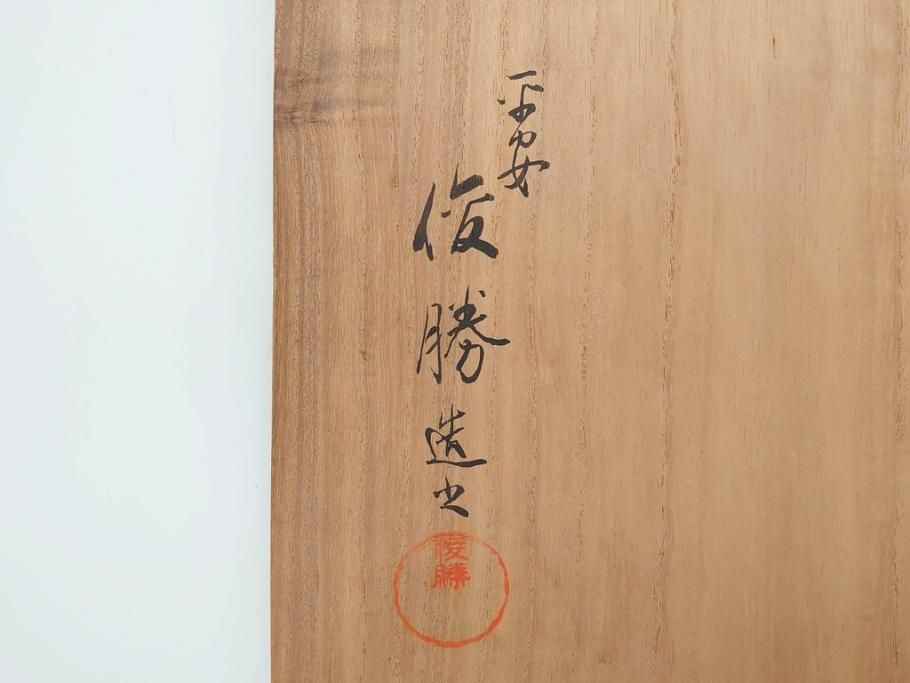 平安
俊勝造之
俊勝